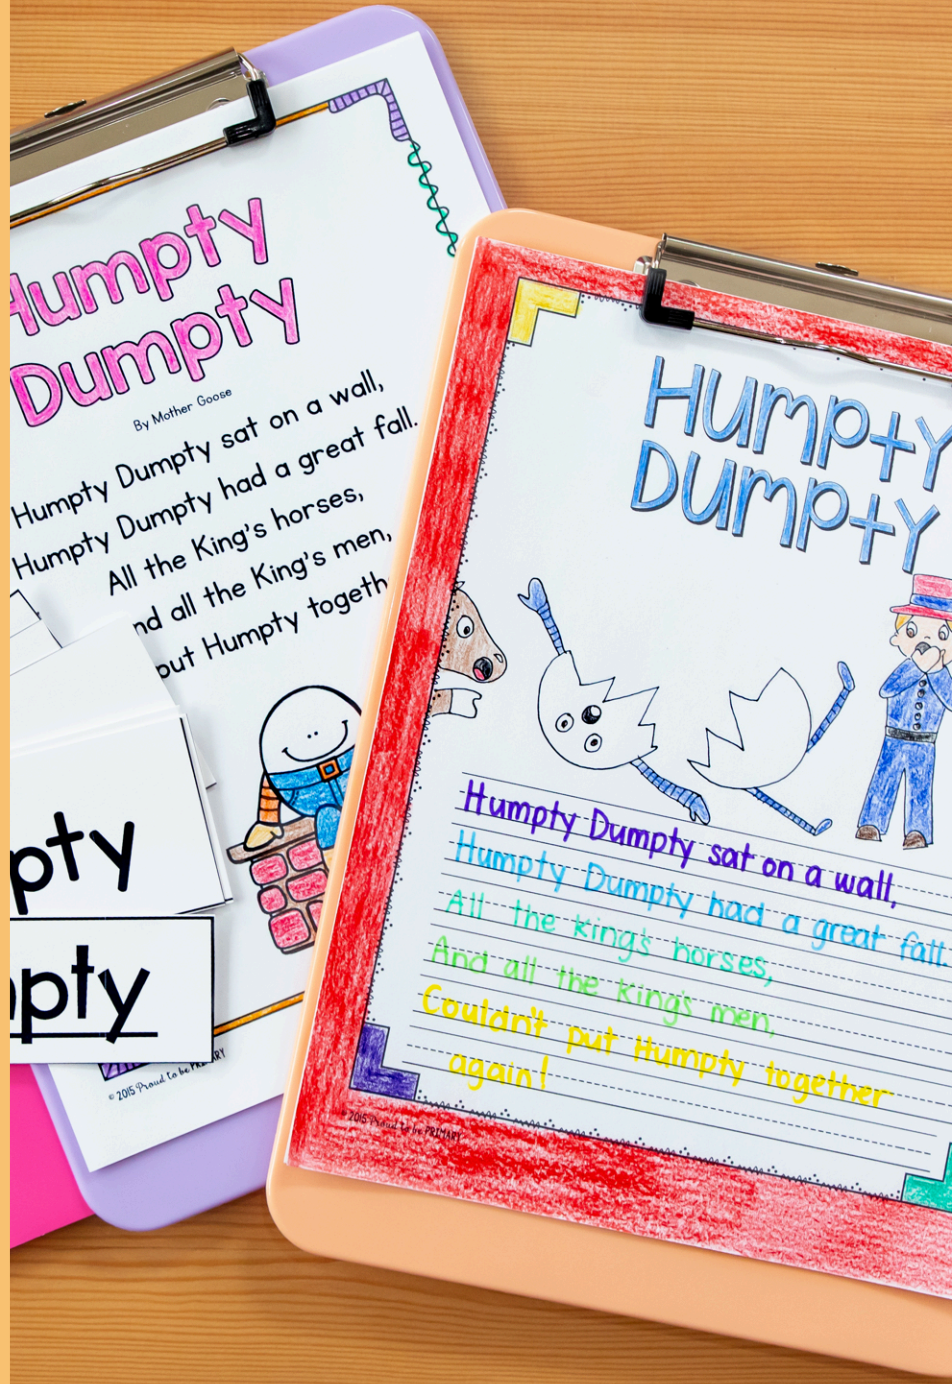 Humpty
Dumpty
By Mother Goose
Humpty Dumpty sat on a wall,
Humpty Dumpty had a great fall.
All the King's horses,
nd all the King's men,
put Humpty togeth
pty
pty
© 2015 Proud to be PRIMARY
Humpty
Dumpty
Humpty Dumpty sat on a wall,
Humpty Dumpty had a great fall.
All the king's horses,
And all the king's men,
Couldn't put Humpty together
again!
© 2015 Proud to be PRIMARY